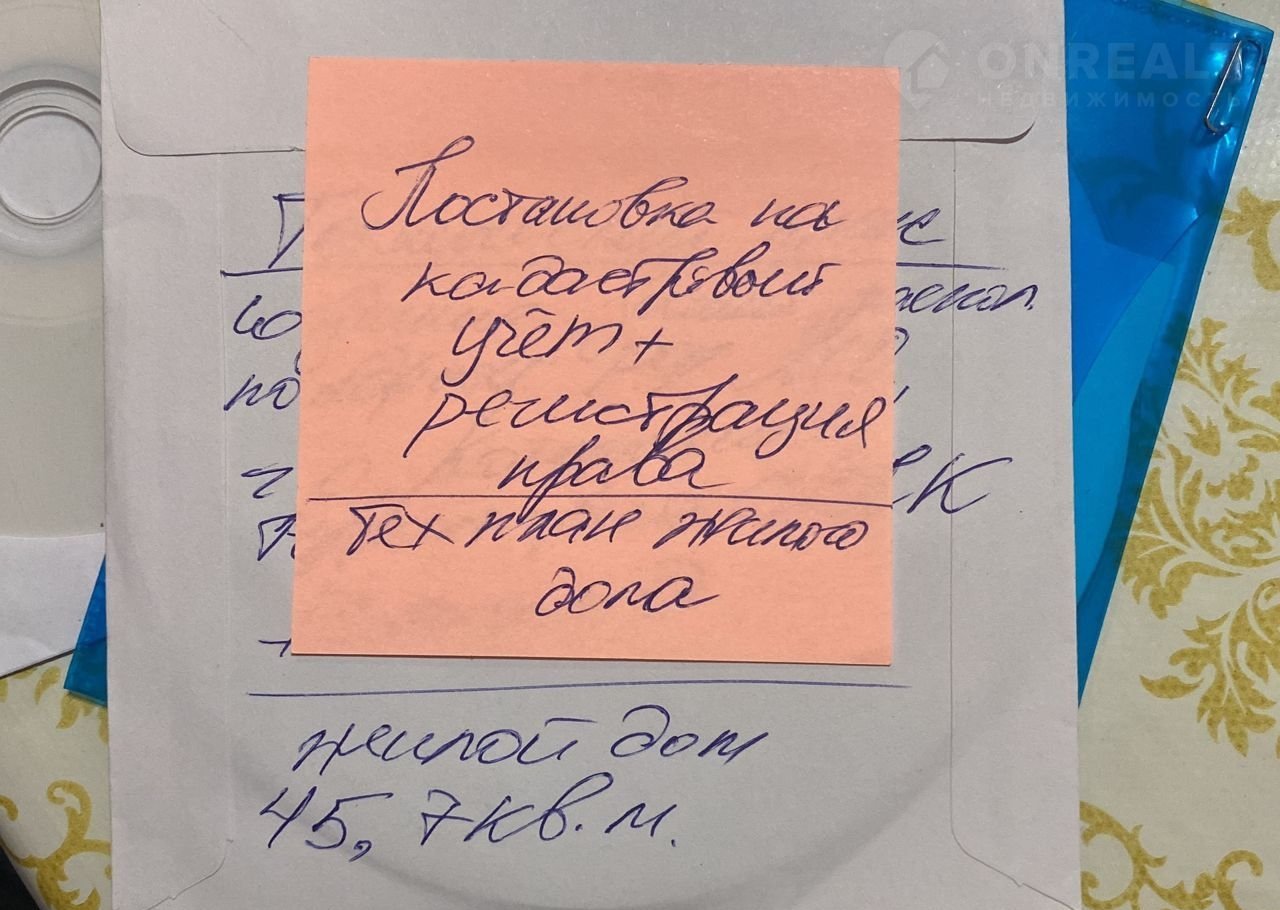 ONREALT
НЕДВИЖИМОСТЬ
Постановка на
кадастровый
учёт +
регистрация
права
Тех план жилого
дома
жилой дом
45,7 кв.м.